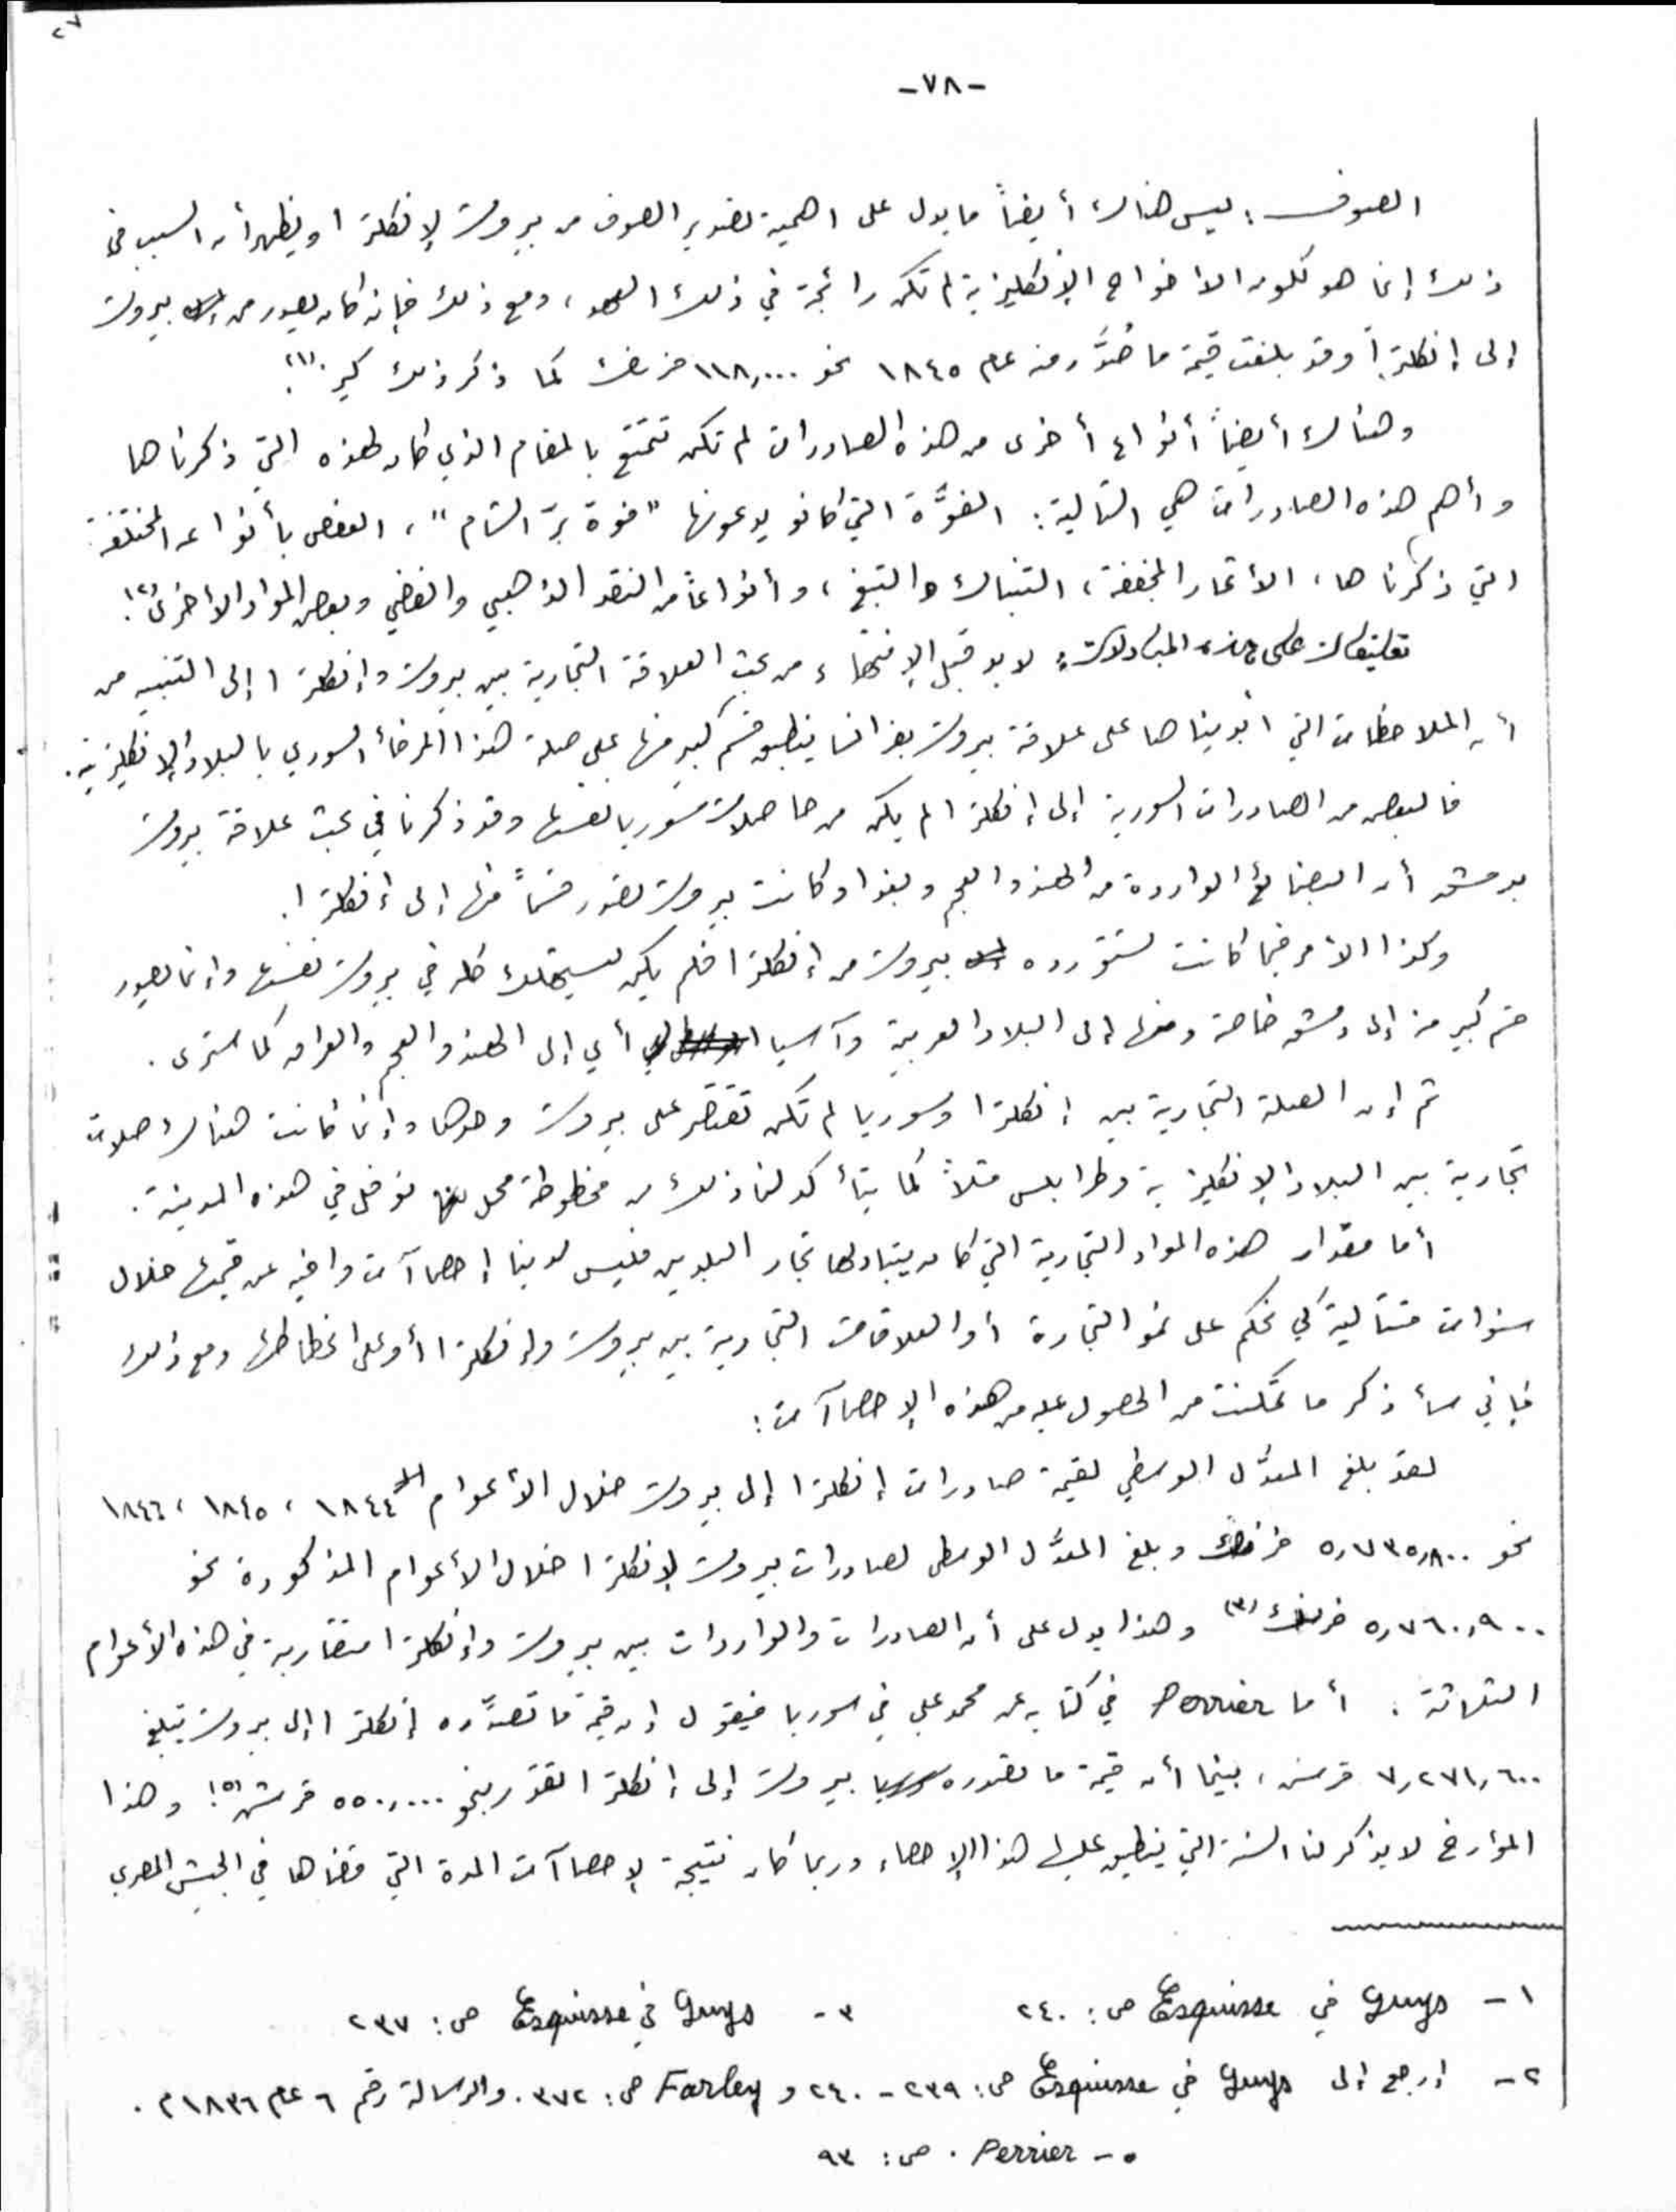 ٢٧
-٧٨-
الصوف: ليس هناك أيضاً ما يدل على اهمية تصدير الصوف من بيروت لإنكلترا ويظهر أن السبب في
ذلك إنما هو لكون الاخواج الإنكليزية لم تكن رائجة في ذلك العهد، ومع ذلك فإنه كان يصدر من بيروت
إلى إنكلترا وقد بلغت قيمة ما صُدَّر منه عام ١٨٤٥ نحو ١١٨,٠٠٠ فرنك كما ذكر ذلك كيز (١).
وهناك أيضاً أنواع أخرى من هذه الصادرات لم تكن تتمتع بالمقام الذي كان لهذه التي ذكرناها
وأهم هذه الصادرات هي التالية: الفوَّة التي كانو يدعونها "فوة برّ الشام"، العفص بأنواعه المختلفة
التي ذكرناها، الأثمار المجففة، التنباك والتبغ، وأنواعاً من النقد الذهبي والفضي وبعض المواد الأخرى (٢).
تعليقات على هذه المبادلات: لا بد قبل الإنتهاء من بحث العلاقة التجارية بين بيروت وإنكلترا إلى التنبيه من
أن الملاحظات التي ابديناها على علاقة بيروت بفرانسا ينطبق قسم كبير منها على صلة هذا المرفأ السوري بالبلاد الإنكليزية.
فالبعض من الصادرات السورية إلى إنكلترا لم يكن من حاصلات سوريا نفسها وقد ذكرنا في بحث علاقة بيروت
بدمشق أن البضائع الواردة من الهند والعجم وبغداد كانت بيروت تصدر قسماً منها إلى إنكلترا.
وكذا الأمر فيما كانت تستورده بيروت من إنكلترا فلم يكن ليستهلك كله في بيروت نفسها وإنما يصدر
قسم كبير منه إلى دمشق خاصة ومنها إلى البلاد العربية وآسيا أي إلى الهند والعجم والعراق كما سنرى.
ثم إن الصلة التجارية بين إنكلترا وسوريا لم تكن تقتصر على بيروت وحدها وإنما كانت هناك صلات
تجارية بين البلاد الإنكليزية وطرابلس مثلاً كما يتأكد لنا ذلك من مخطوطة محل نوفل في هذه المدينة.
أما مقدار هذه المواد التجارية التي كان يتبادلها تجار البلدين فليس لدينا إحصاآت وافيه عن قيمتها خلال
سنوات متتالية كي نحكم على نمو التجارة أو العلاقات التجارية بين بيروت وإنكلترا أو على انحطاطها ومع ذلك
فإني سأذكر ما تمكنت من الحصول عليه من هذه الإحصاآت:
لقد بلغ المعدَّل الوسطي لقيمة صادرات إنكلترا إلى بيروت خلال الأعوام ١٨٤٤، ١٨٤٥، ١٨٤٦
نحو ٥,٧٣٥,٨٠٠ فرنك وبلغ المعدَّل الوسطى لصادرات بيروت لإنكلترا خلال الأعوام المذكورة نحو
٥,٧٦٠,٩٠٠ فرنك (٣) وهذا يدل على أن الصادرات والواردات بين بيروت وإنكلترا متقاربة في هذه الأعوام
الثلاثة. أما Perrier في كتابه عن محمد علي في سوريا فيقول إن قيمة ما تصدَّره إنكلترا إلى بيروت يبلغ
٧,٢٧١,٦٠٠ قرش، بينما أن قيمة ما تصدره بيروت إلى إنكلترا تقدّر بنحو ٥٥٠,٠٠٠ قرش (٥) وهذا
المؤارخ لا يذكر لنا السنة التي ينطبق عليها هذا الإحصاء وربما كان نتيجة لإحصاآت المدة التي قضاها في الجيش المصري
١- Guys في Esquisse ص: ٢٤٠
٣- Guys في Esquisse ص: ٢٣٧
٢- إرجع إلى Guys في Esquisse ص: ٢٣٩ - ٢٤٠ و Farley ص: ٣٧٢. والرسالة رقم ٦ عام ١٨٣٦م.
٥- Perrier. ص: ٩٣